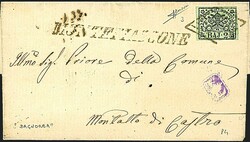 MONTEFIASCONE
BAJ 2
Illmo Sig Priore della Comune
di
Montalto di
Castro
"BAGNOREA"
14